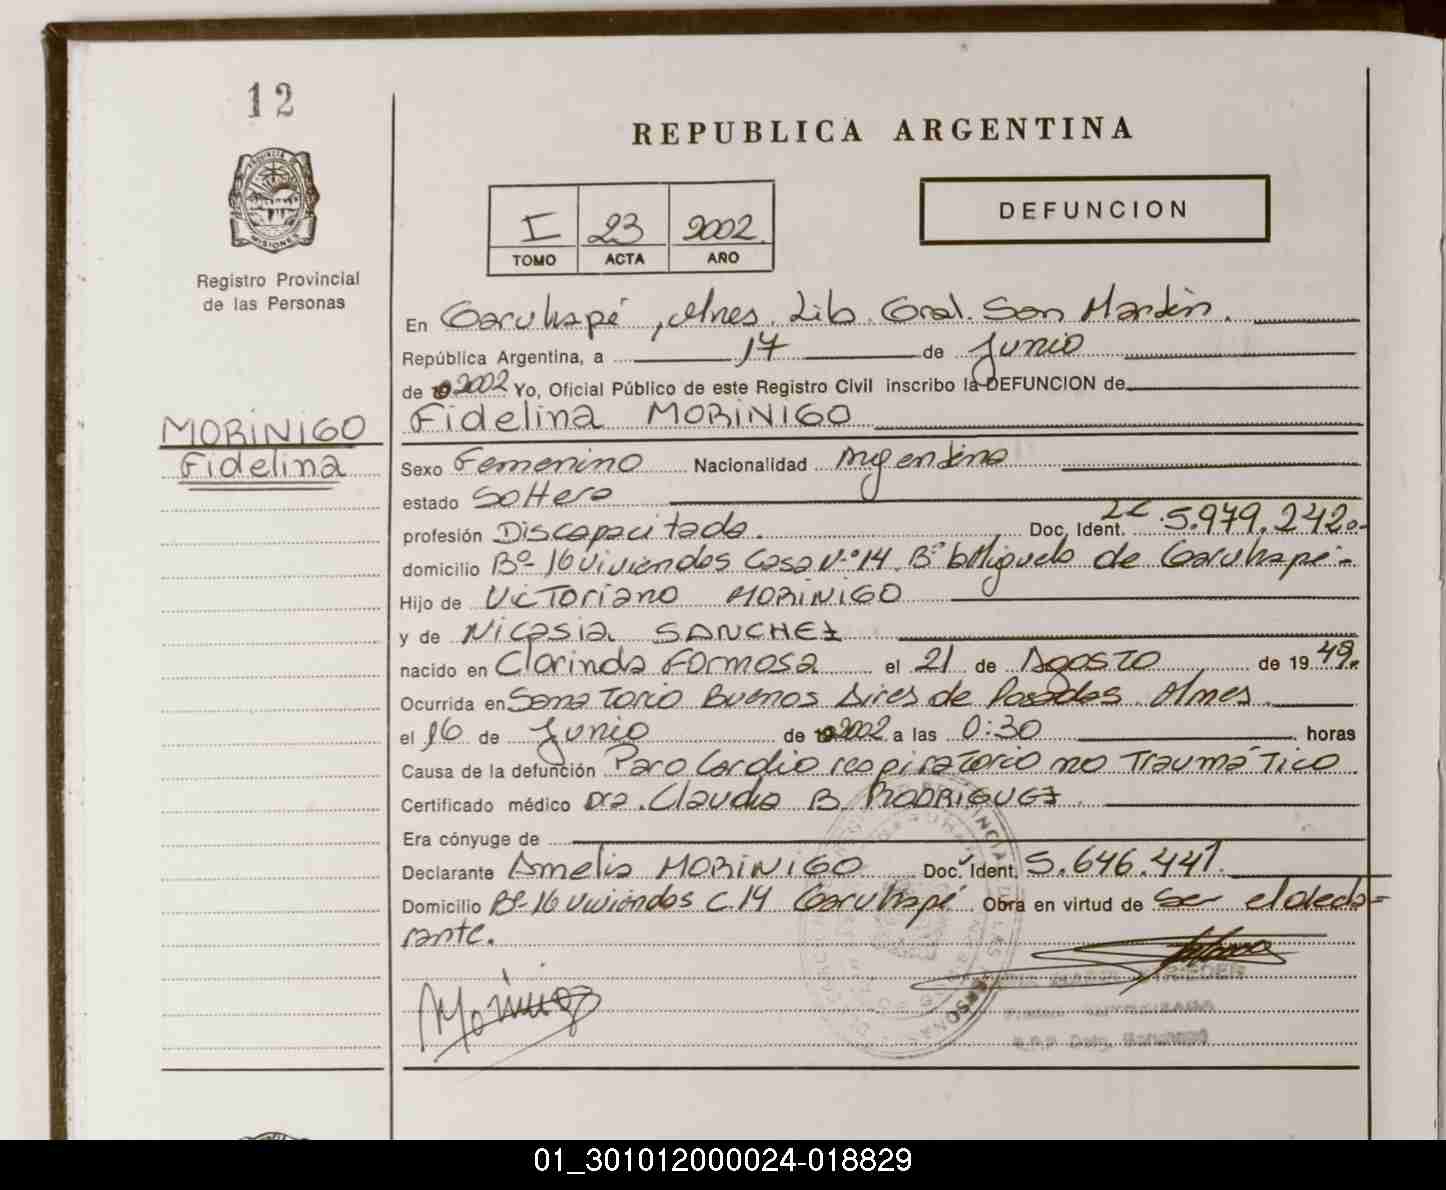 12
REPUBLICA ARGENTINA
I 23 2002
TOMO ACTA AÑO
DEFUNCION
PROVINCIA DE
MISIONES
Registro Provincial
de las Personas
MORINIGO
Fidelina
En Garuhapé, Mnes. Lib. Gral. San Martín.
República Argentina, a 17 de Junio
de 2002 Yo, Oficial Público de este Registro Civil inscribo la DEFUNCION de
Fidelina MORINIGO
Sexo Femenino Nacionalidad Argentina
estado Soltera
profesión Discapacitada. Doc. Ident. LC 5.979.242.-
domicilio Bº 16 viviendas Casa Nº 14, Bº de Garuhapé.-
Hijo de Victoriano MORINIGO
y de Nicasia SANCHEZ
nacido en Clorinda Formosa el 21 de Agosto de 1949.
Ocurrida en Sanatorio Buenos Aires de Posadas Mnes.
el 16 de Junio de 2002 a las 0:30 horas
Causa de la defunción Paro Cardio respiratorio no Traumático
Certificado médico Dra. Claudia B. RODRIGUEZ
Era cónyuge de
Declarante Amelia MORINIGO Doc. Ident. 5.646.441.
Domicilio Bº 16 viviendas C.14 Garuhapé Obra en virtud de Ser el decla=
rante.
Morinigo
01_301012000024-018829